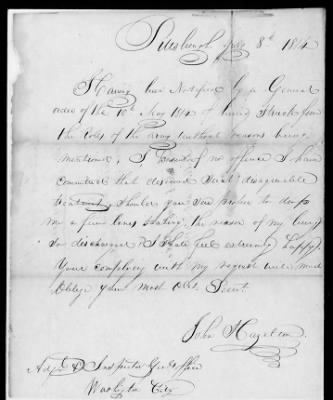 Pittsburgh July 8th 1814
Having been Notified by a General
order of the 10th May 1814 of being Struck from
the Roles of the Army without reasons being
mentioned, I know of no offence I have
committed that deserved Such disagreeable
treatment, Should you Sir please to drop
me a few lines Stating the reason of my being
So discharged I Shall feel extremely happy
Your complying with my request will much
Oblige your most Obt. Servt.
John Hazelton
Adjt & Inspector Genls office
Washington City